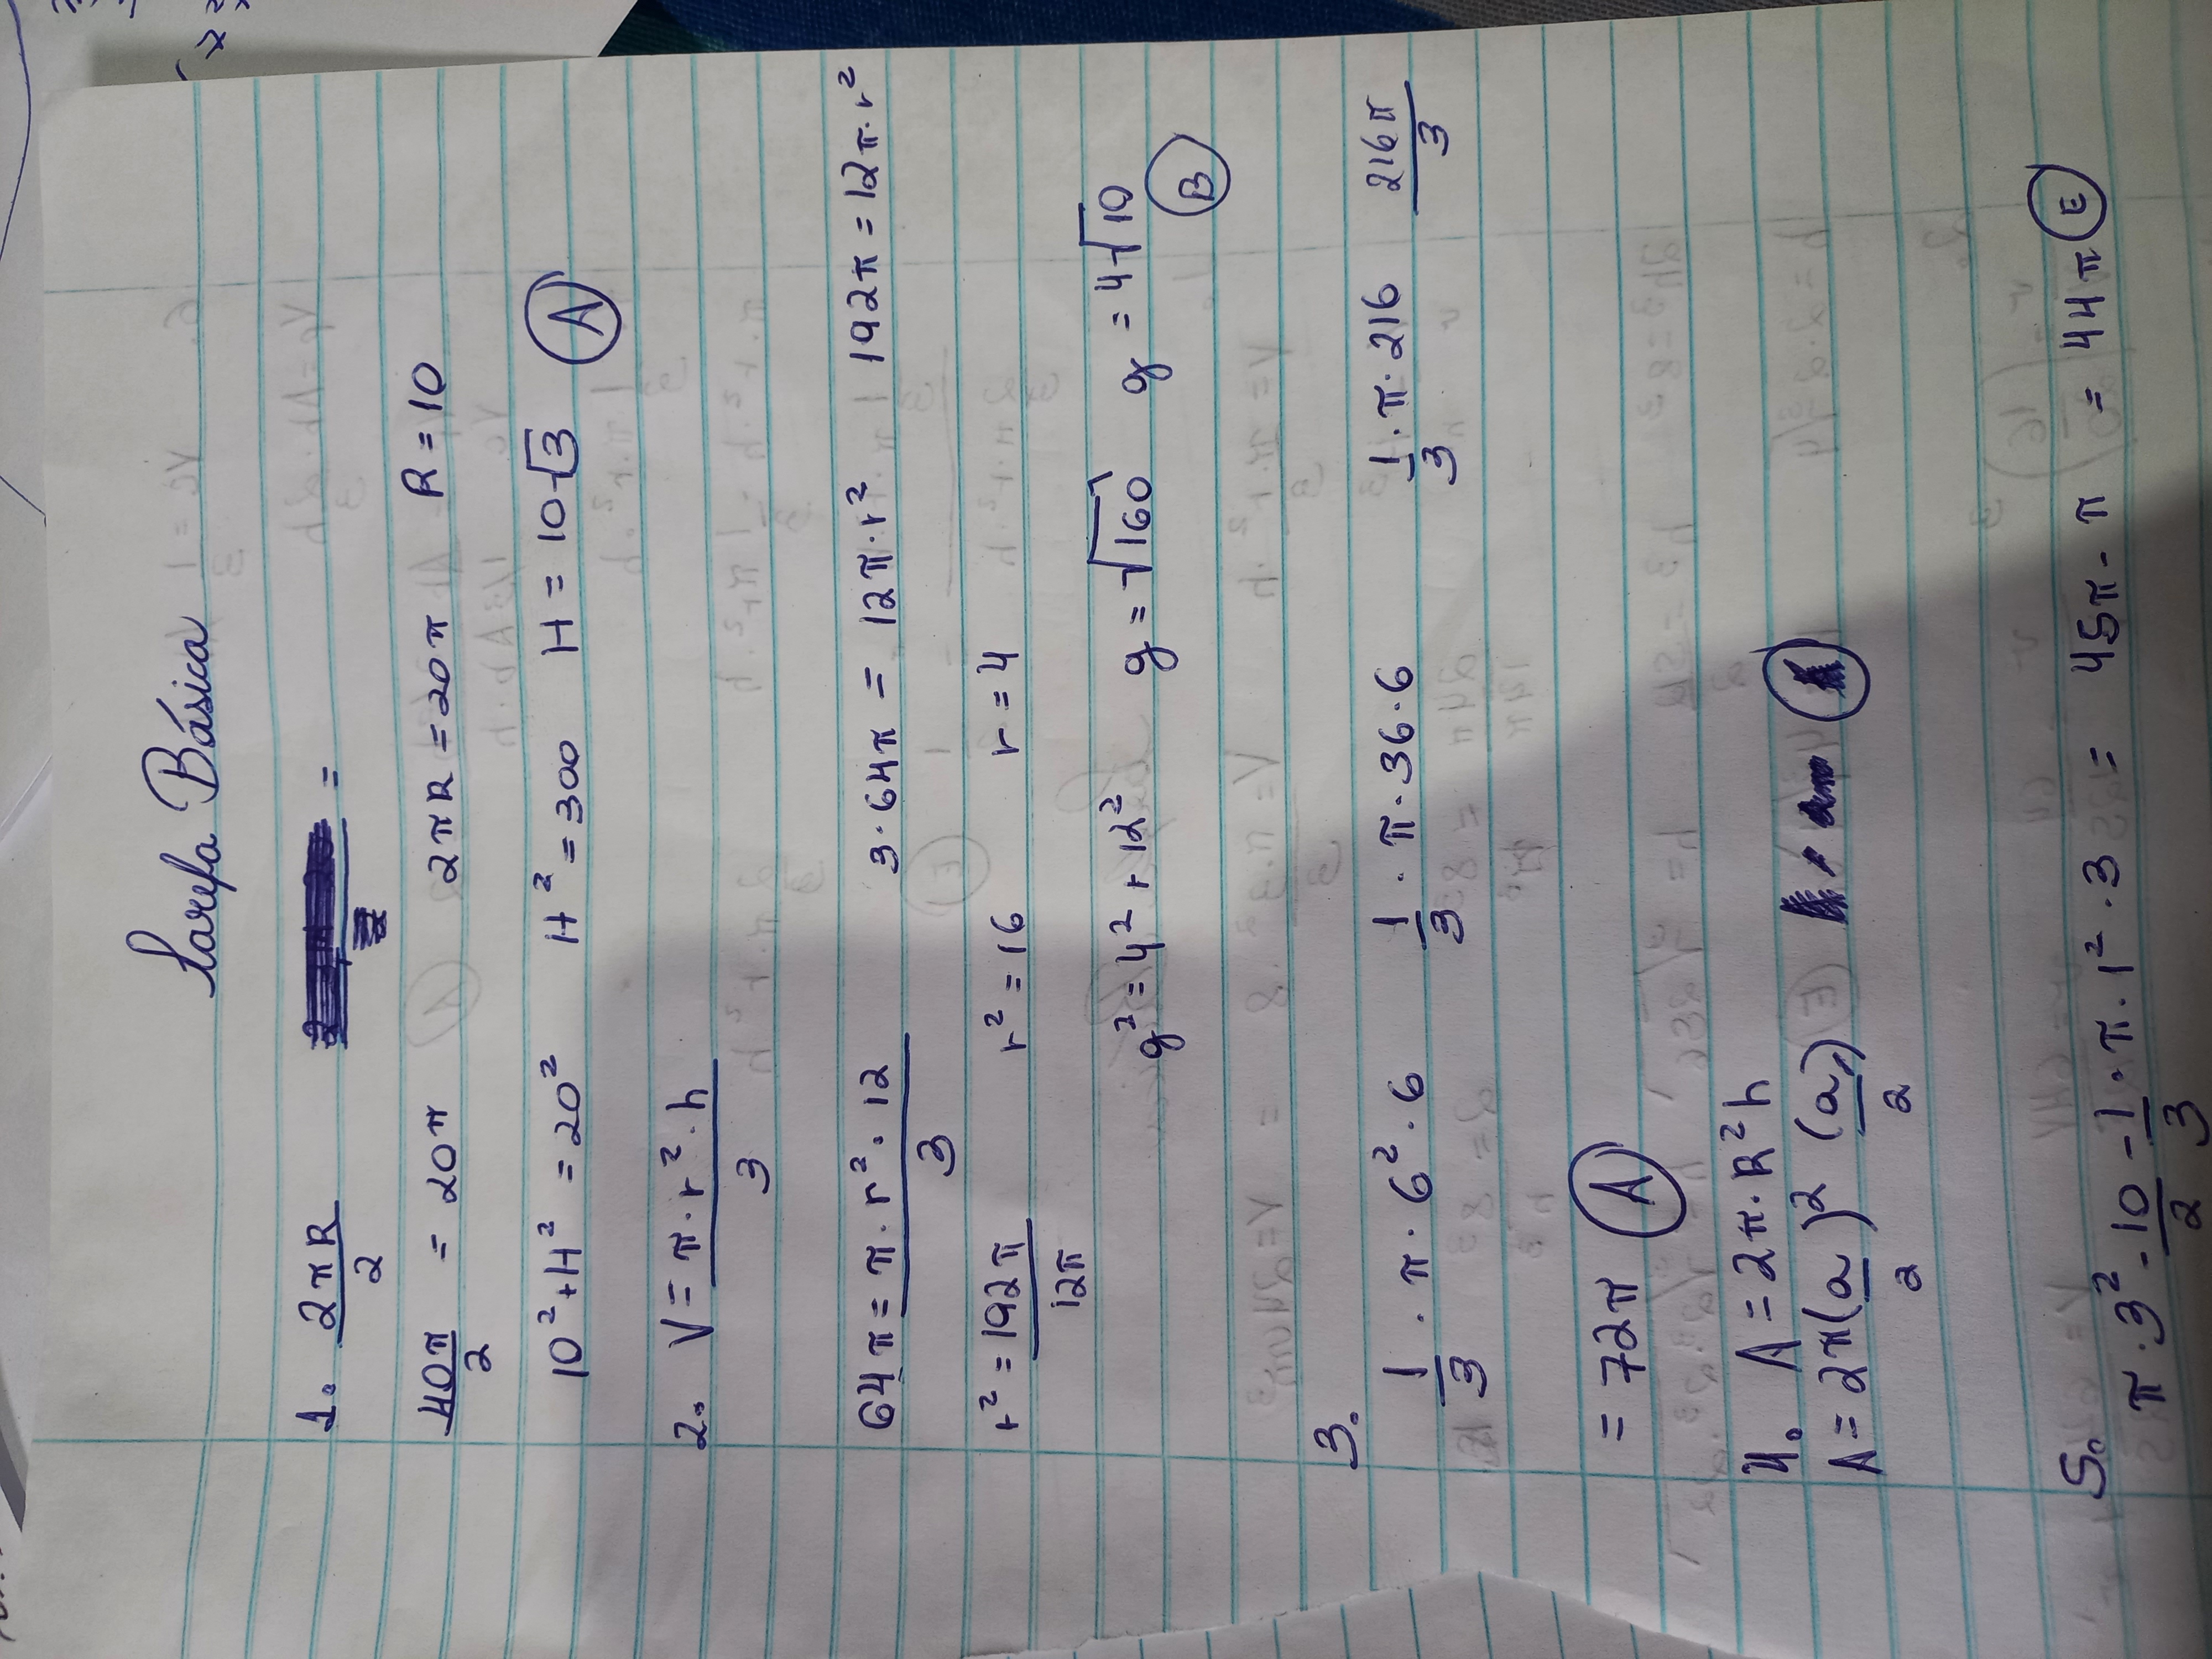 Tarefa Básica
1. 2πR/2 =
40π/2 = 20π 2πR = 20π R = 10
10² + H² = 20² H² = 300 H = 10√3 A
2. V = π · r² · h / 3
64π = π · r² · 12 / 3 3 · 64π = 12π · r² 192π = 12π · r²
r² = 192π/12π r² = 16 r = 4
g² = 4² + 12² g = √160 g = 4√10
B
3.
1/3 · π · 6² · 6 1/3 · π · 36 · 6 1/3 · π · 216 216π/3
= 72π A
4. A = 2π · R² h
A = 2π (a/2)² (a/2)
5.
π · 3² - 10/2 - 1/3 · π · 1² · 3 = 45π - π = 44π E